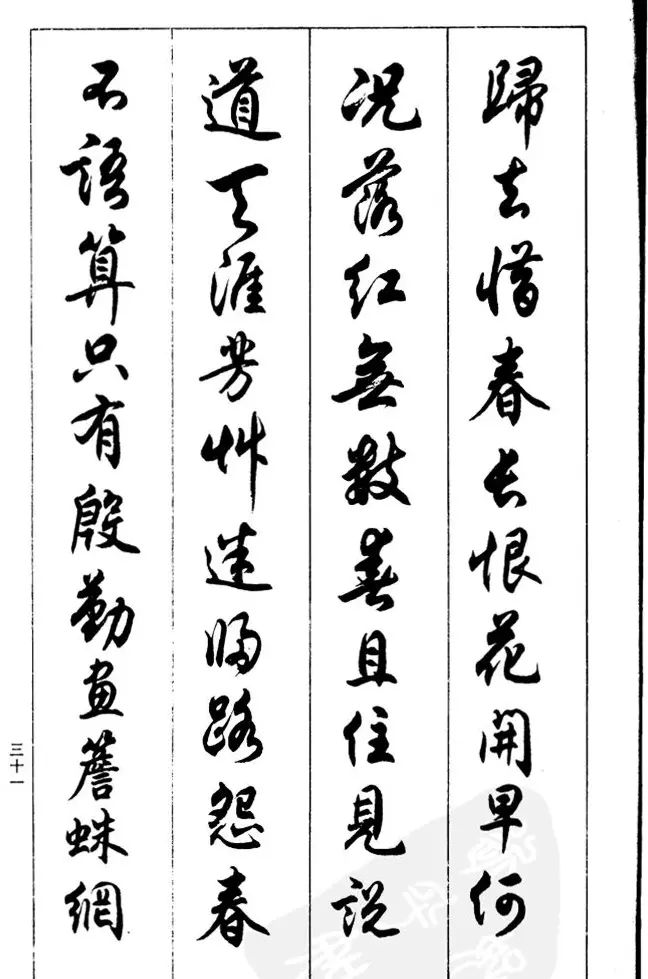 歸去惜春長恨花開早何
況落紅無數春且住見說
道天涯芳艸迷歸路怨春
不語算只有殷勤畫簷蛛網
三十一